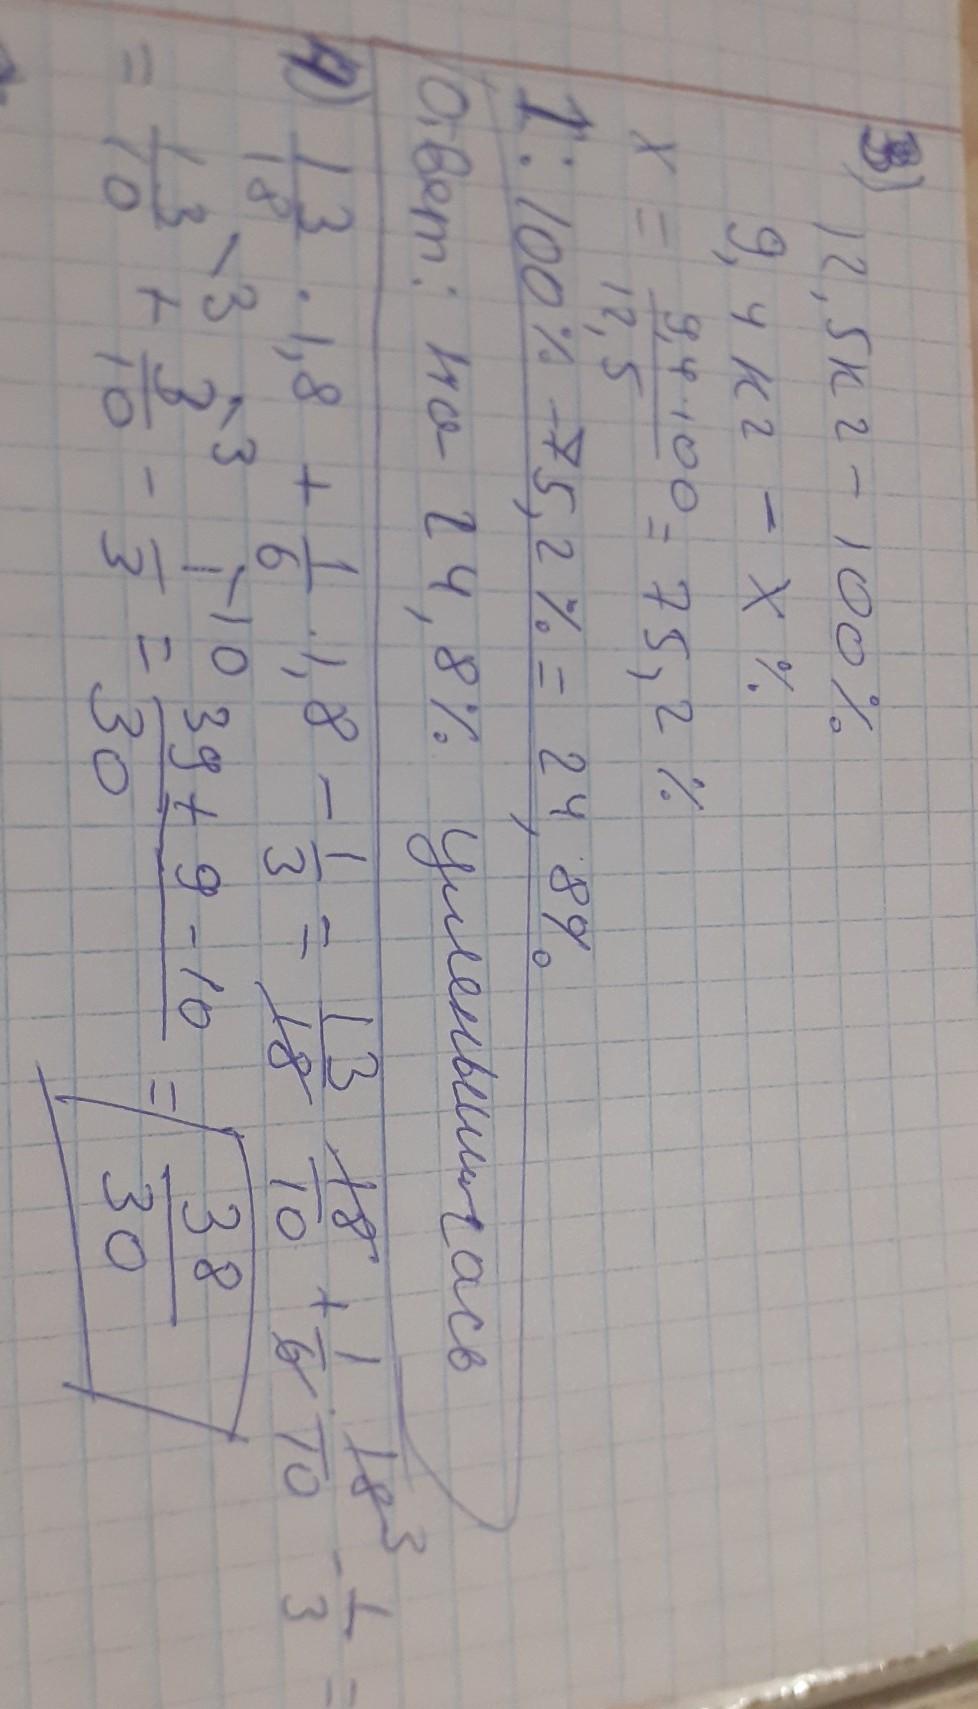 3) 12,5 кг - 100%
9,4 кг - x %
x = 9,4·100/12,5 = 75,2 %
1: 100% - 75,2% = 24,8%
Ответ: на 24,8% уменьшилась
4) 13/18 · 1,8 + 1/6 · 1,8 - 1/3 = 13/18 · 18/10 + 1/6 · 18 3/10 - 1/3 =
= 13/10 \3 + 3/10 \3 - 1/3 \10 = 39 + 9 - 10/30 = 38/30